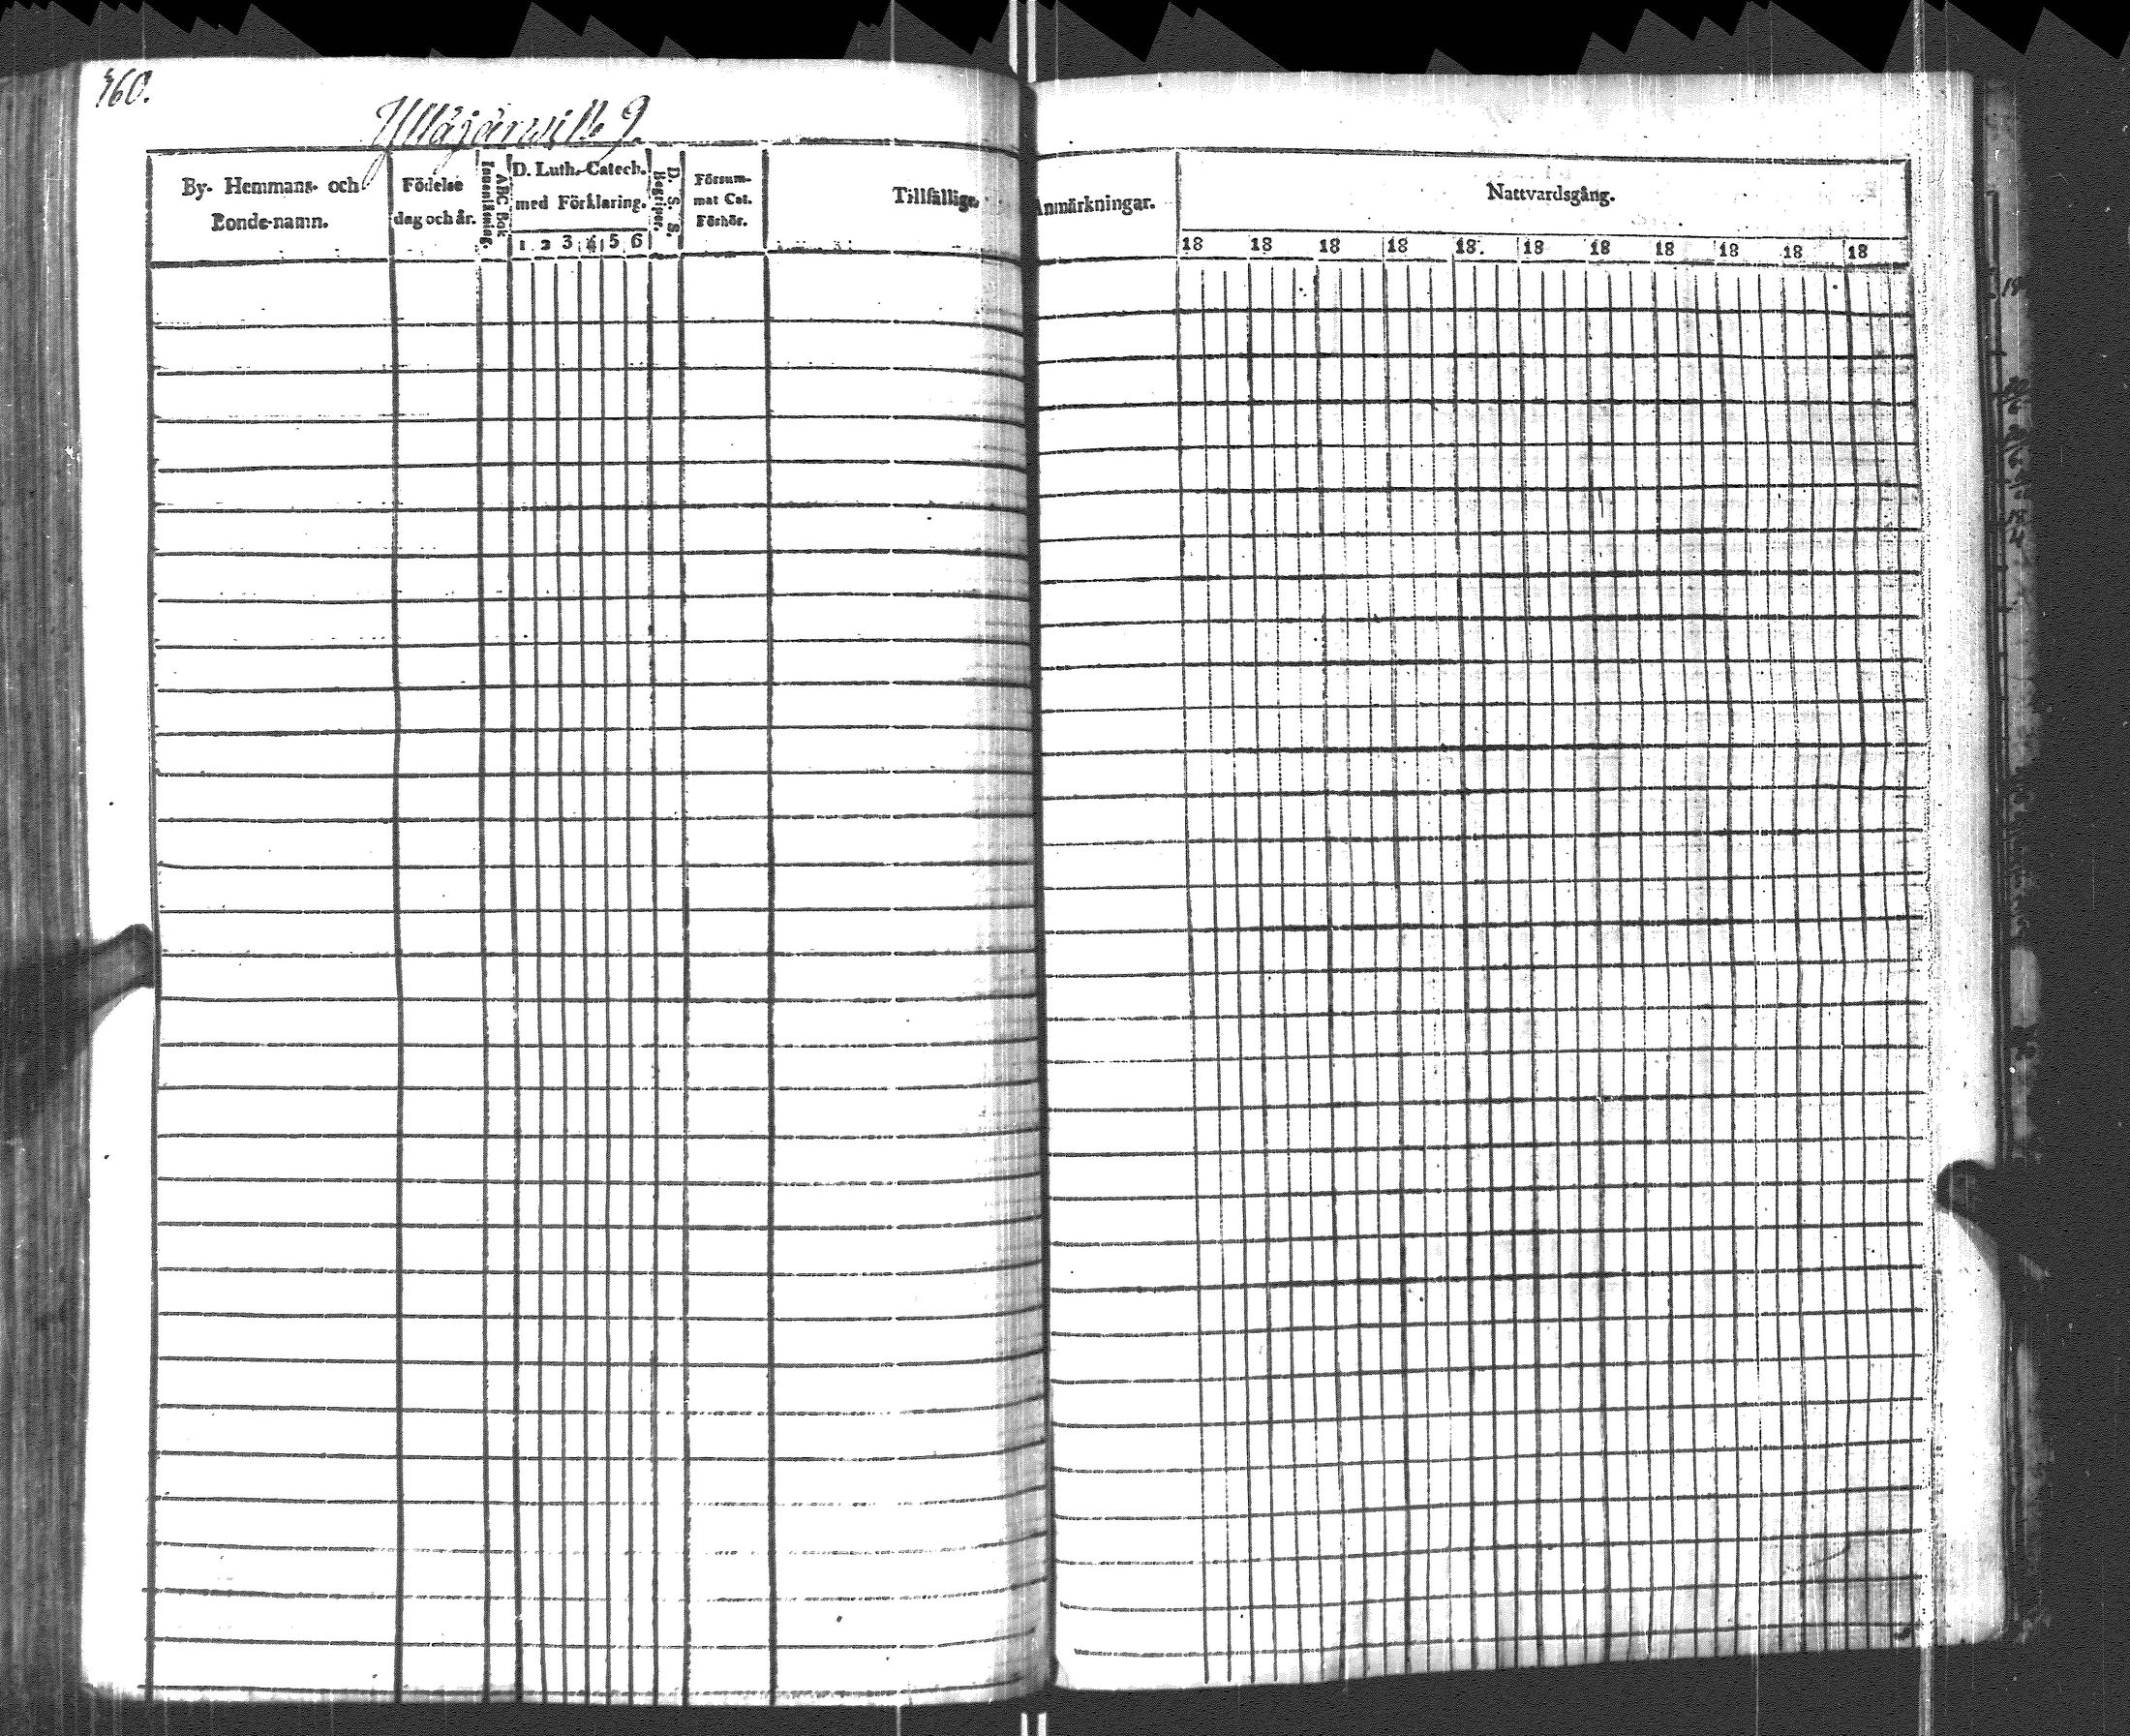 460.
Yllåjärwilb 9.
By- Hemmans- och
Bonde-namn.
Födelse
dag och år.
Innanläsning.
ABC Bok
D. Luth. Catech.
med Förklaring.
1 2 3 4 5 6
D. S. S.
Begriper.
Försum-
mat Cat.
Förhör.
Tillfällige
Anmärkningar.
Nattvardsgång.
18 18 18 18 18. 18 18 18 18 18 18